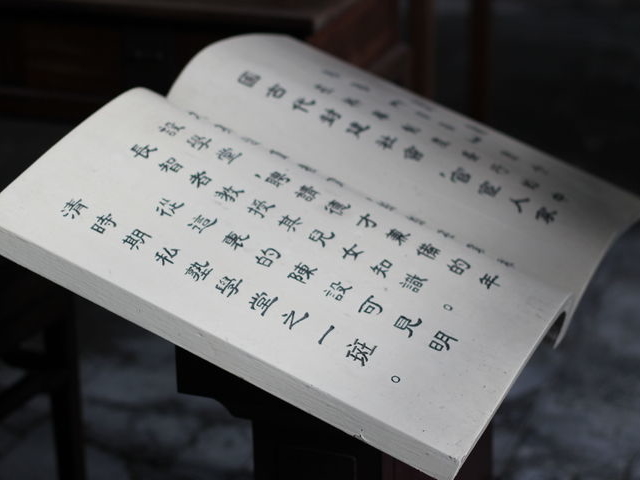 國古代封建社會，官宦人家
設學堂，聘請德才兼備的年
長智者教授其兒女知識。
從這裏的陳設可見明
清時期私塾學堂之一斑。